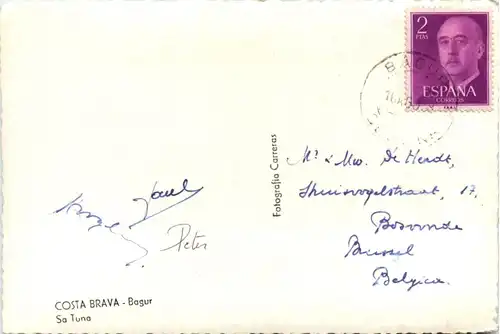 2
PTAS
ESPAÑA
CORREOS
BAGUR
Fotografia Carreras
Mr & Mw. De Herdt,
Thuisvogelstraat, 17,
Bosvoorde
Brussel
Belgica.
Paul
Peter
COSTA BRAVA - Bagur
Sa Tuna